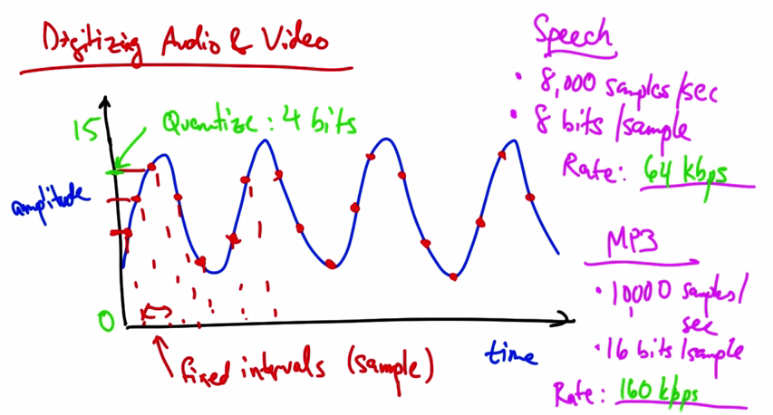 Digitizing Audio & Video
15
Quantize: 4 bits
amplitude
0
fixed intervals (sample)
time
Speech
• 8,000 samples/sec
• 8 bits/sample
Rate: 64 kbps
MP3
• 10,000 samples/
sec
• 16 bits/sample
Rate: 160 kbps